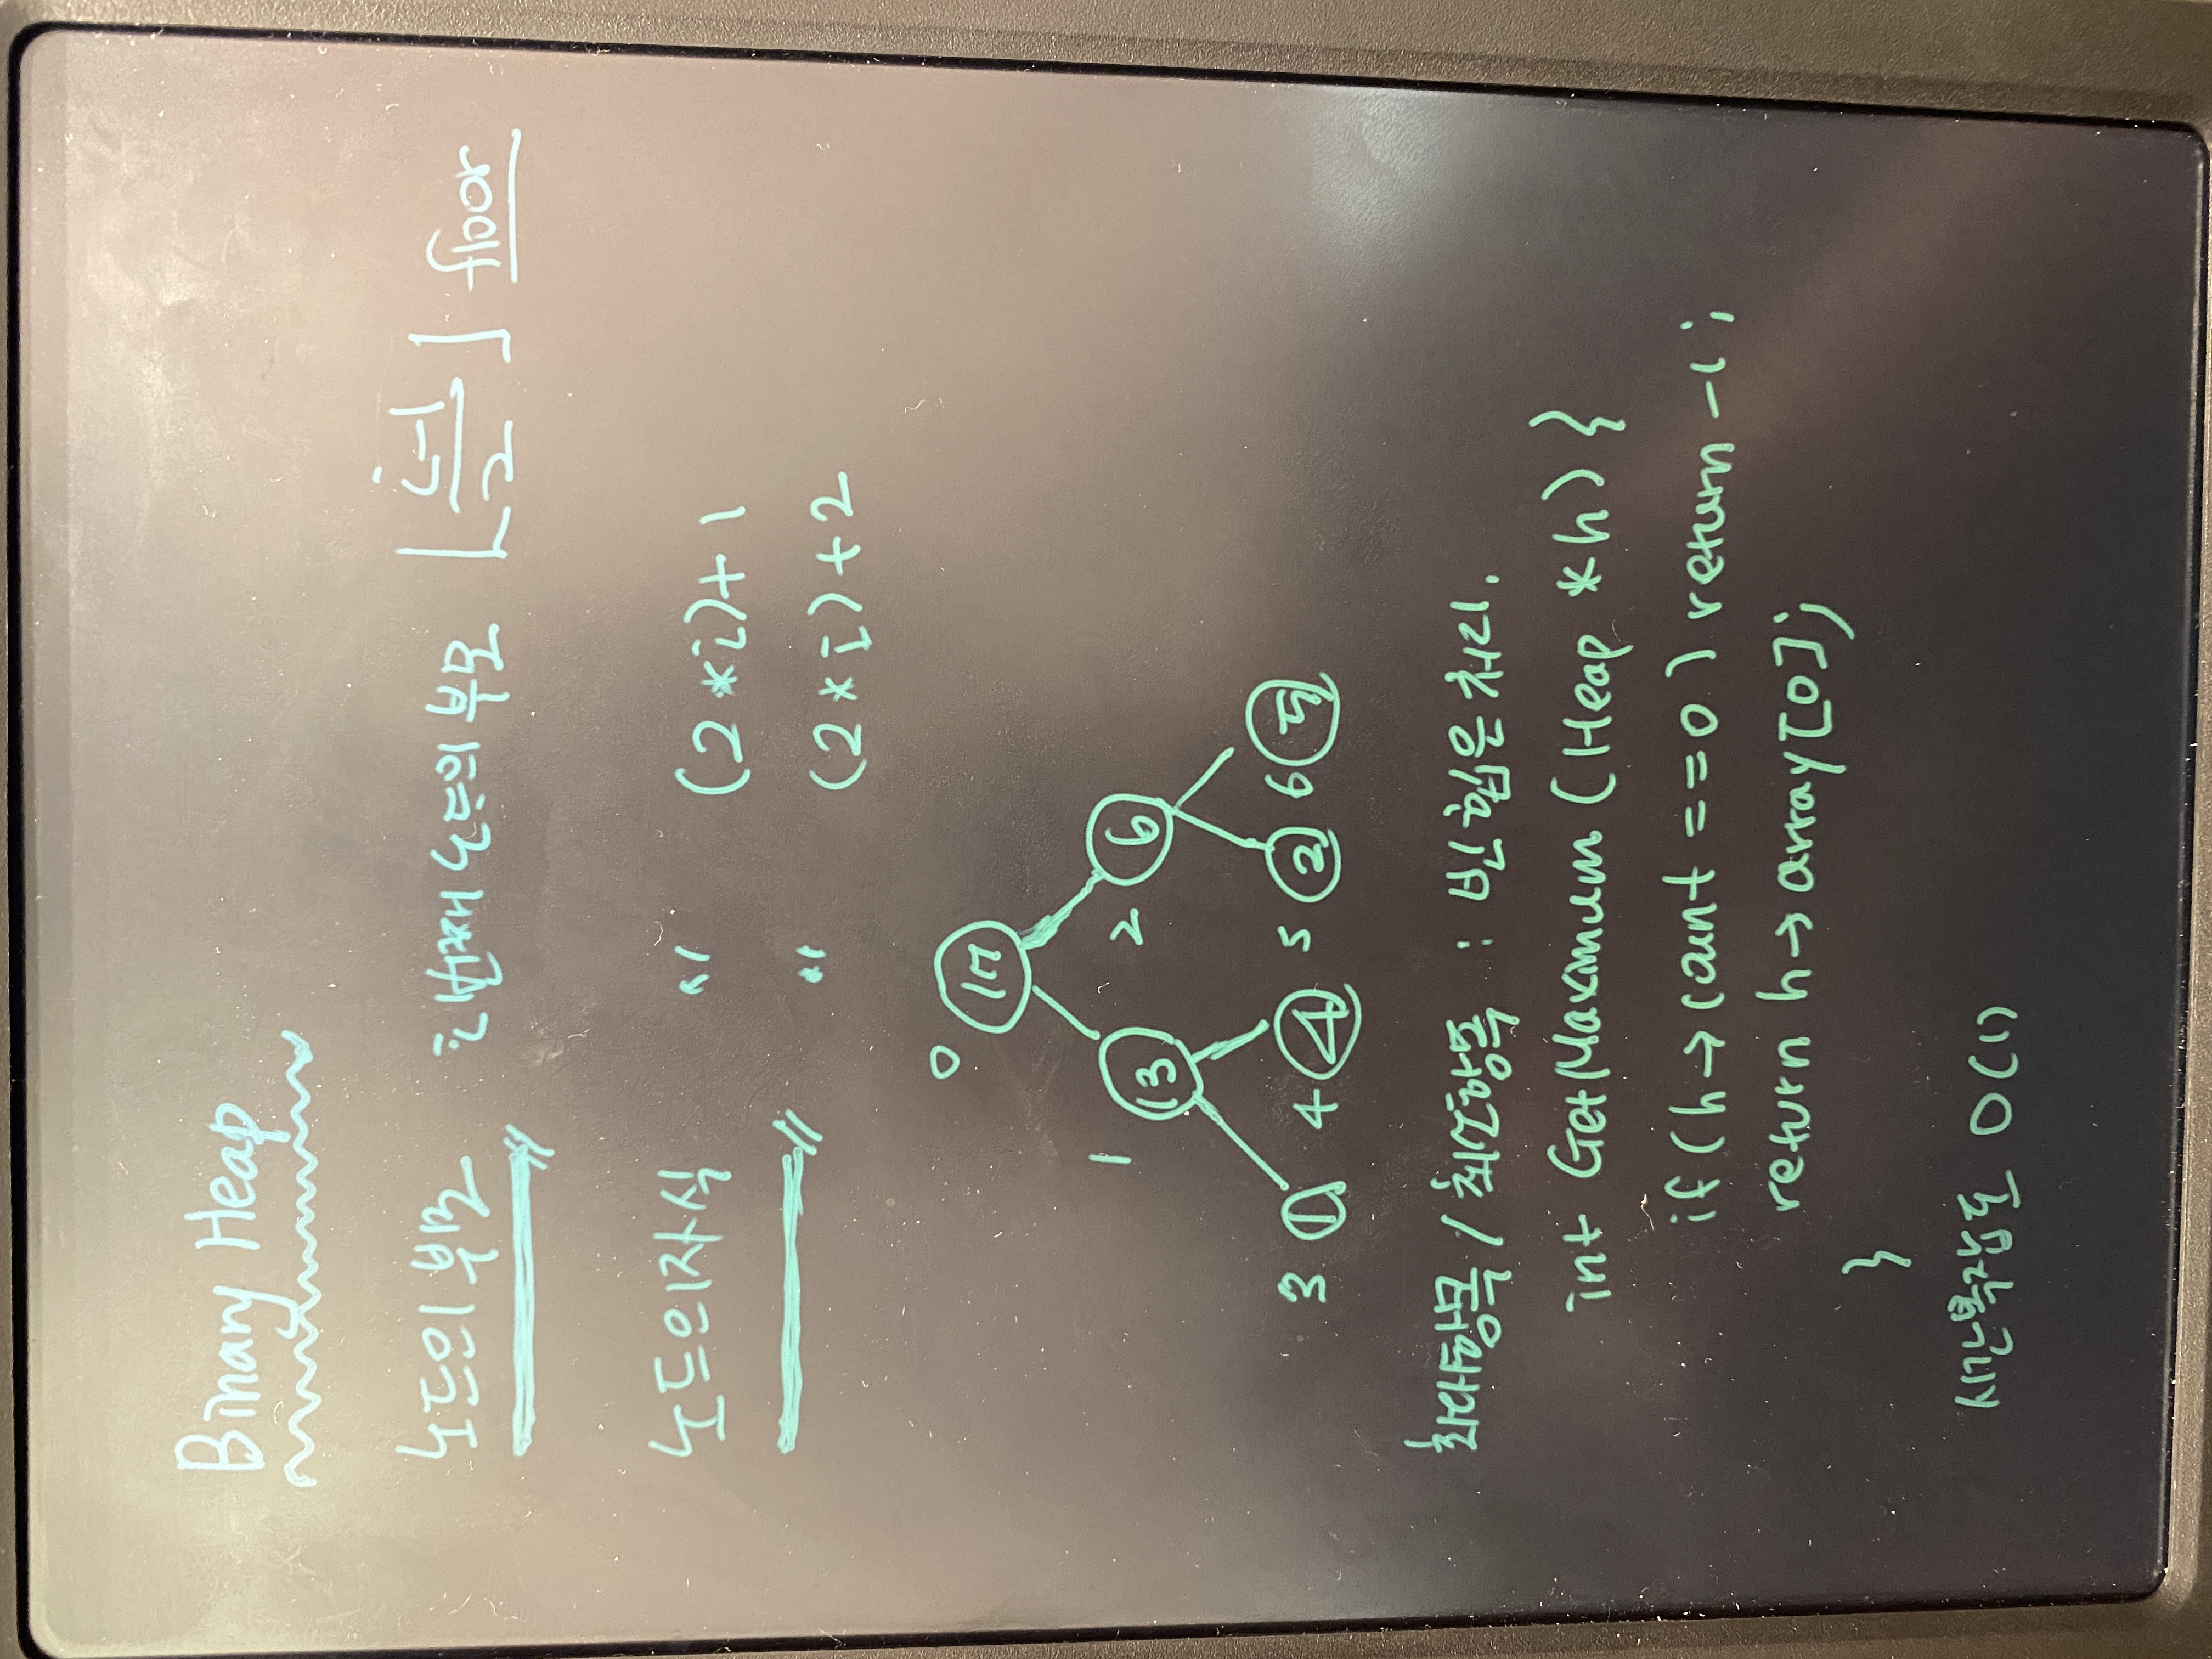 Binary Heap
노드의 부모 i번째 노드의 부모 ⌊(i-1)/2⌋ floor
노드의 자식 〃 (2*i)+1
〃 (2*i)+2
0 17
1 13 2 6
3 1 4 4 5 2 6 5
최대항목 / 최소항목 : 빈 힙은 처리.
int GetMaximum (Heap *h) {
if (h→count ==0 ) return -1;
return h→array[0];
}
시간복잡도 O(1)